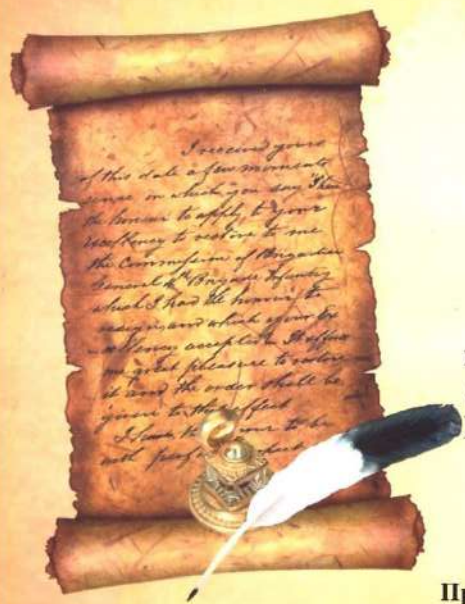 I received yours
of this date a few moments
sence in which you say I have
the honour to apply to your
excellency to restore to me
the Commission of Brigadier
General 4th Brigade Infantry
which I had the honor to
resign and which your Ex
cellency accepted. It affords
me great pleasure to restore
it and the order shall be
given to that effect
I have the your to be
with perfect
Пр